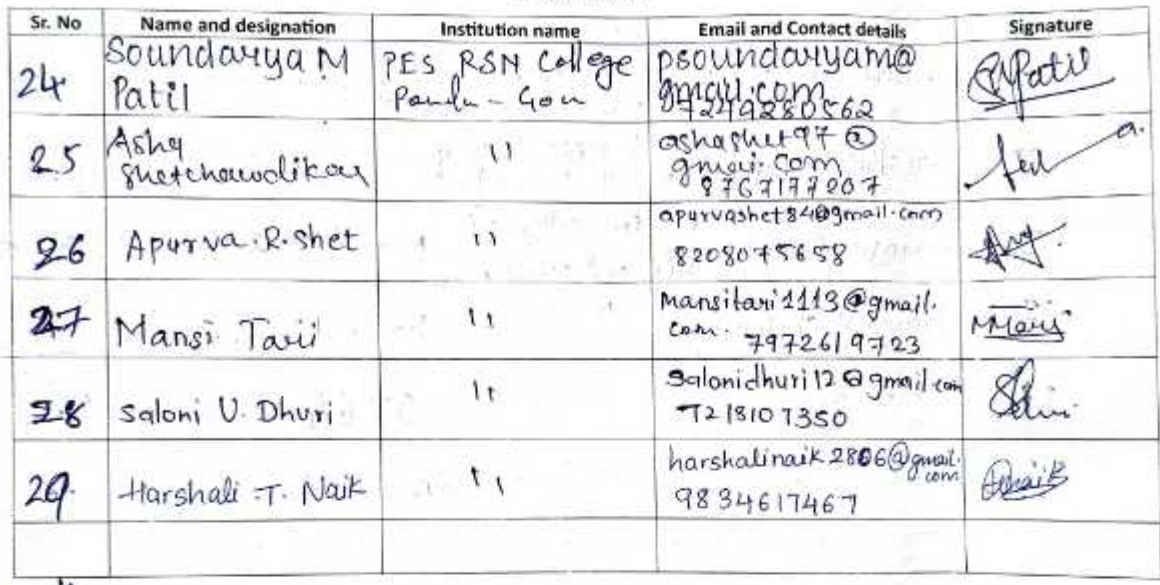 Sr. No Name and designation Institution name Email and Contact details Signature
24. Soundarya M PES RSN College psoundaryam@
Patil Ponda - Goa gmail.com
07249280562
25 Asha " ashashet97@
Shetchawdikar gmai.com
8767177207
26 Apurva.R.Shet " apurvashet84@gmail.com
8208075658
27 Mansi Tari " mansitari1113@gmail.
com. 7972619723
28 Saloni U. Dhuri " salonidhuri12@gmail.com
7218107350
29. Harshali .T. Naik " harshalinaik2806@gmail.
com
9834617467